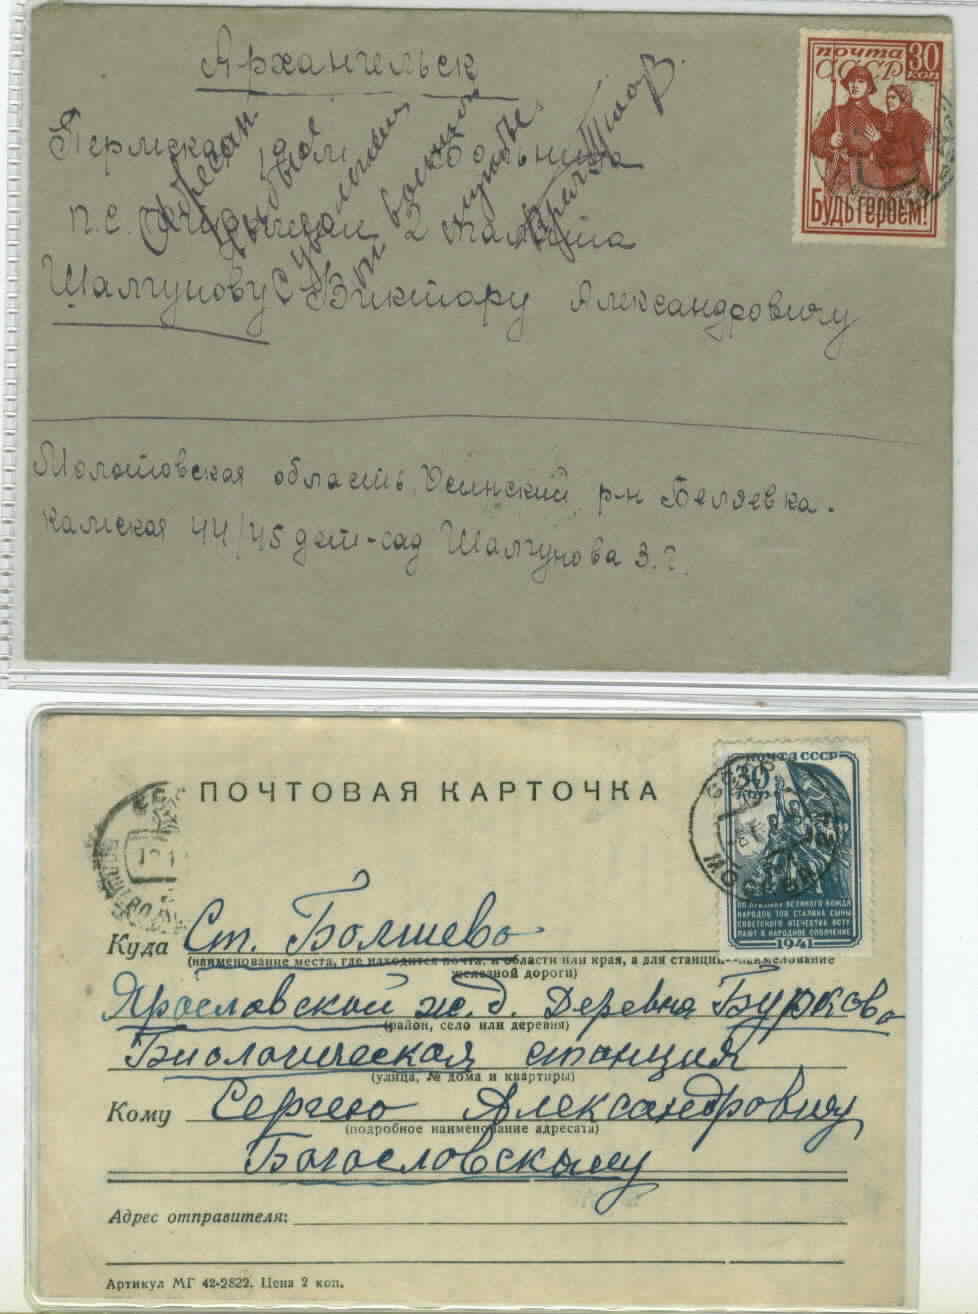 Архангельск
почта 30
СССР коп
Будь героем!
п.с. 2
Шалгунову Виктару Александровичу
Адресат выбыл
военной службы
Молотовская область, Осинский р-н Беляевка-
Камская 44/45 дет-сад Шалгунова З.Г.
ПОЧТОВАЯ КАРТОЧКА
ПОЧТА СССР
30
КОП
СССР
МОСКВА
ПО ПРИЗЫВУ ВЕЛИКОГО ВОЖДЯ
НАРОДОВ ТОВ СТАЛИНА СЫНЫ
СОВЕТСКОГО ОТЕЧЕСТВА ВСТУ
ПАЮТ В НАРОДНОЕ ОПОЛЧЕНИЕ
1941
Куда Ст. Болшево
(наименование места, где находится почта, и области или края, а для станции—наименование
железной дороги)
Ярославской ж.д. Деревня Бурково
(район, село или деревня)
Биологическая станция
(улица, № дома и квартиры)
Кому Сергею Александровичу
(подробное наименование адресата)
Богословскому
Адрес отправителя:
Артикул МГ 42-2822. Цена 2 коп.